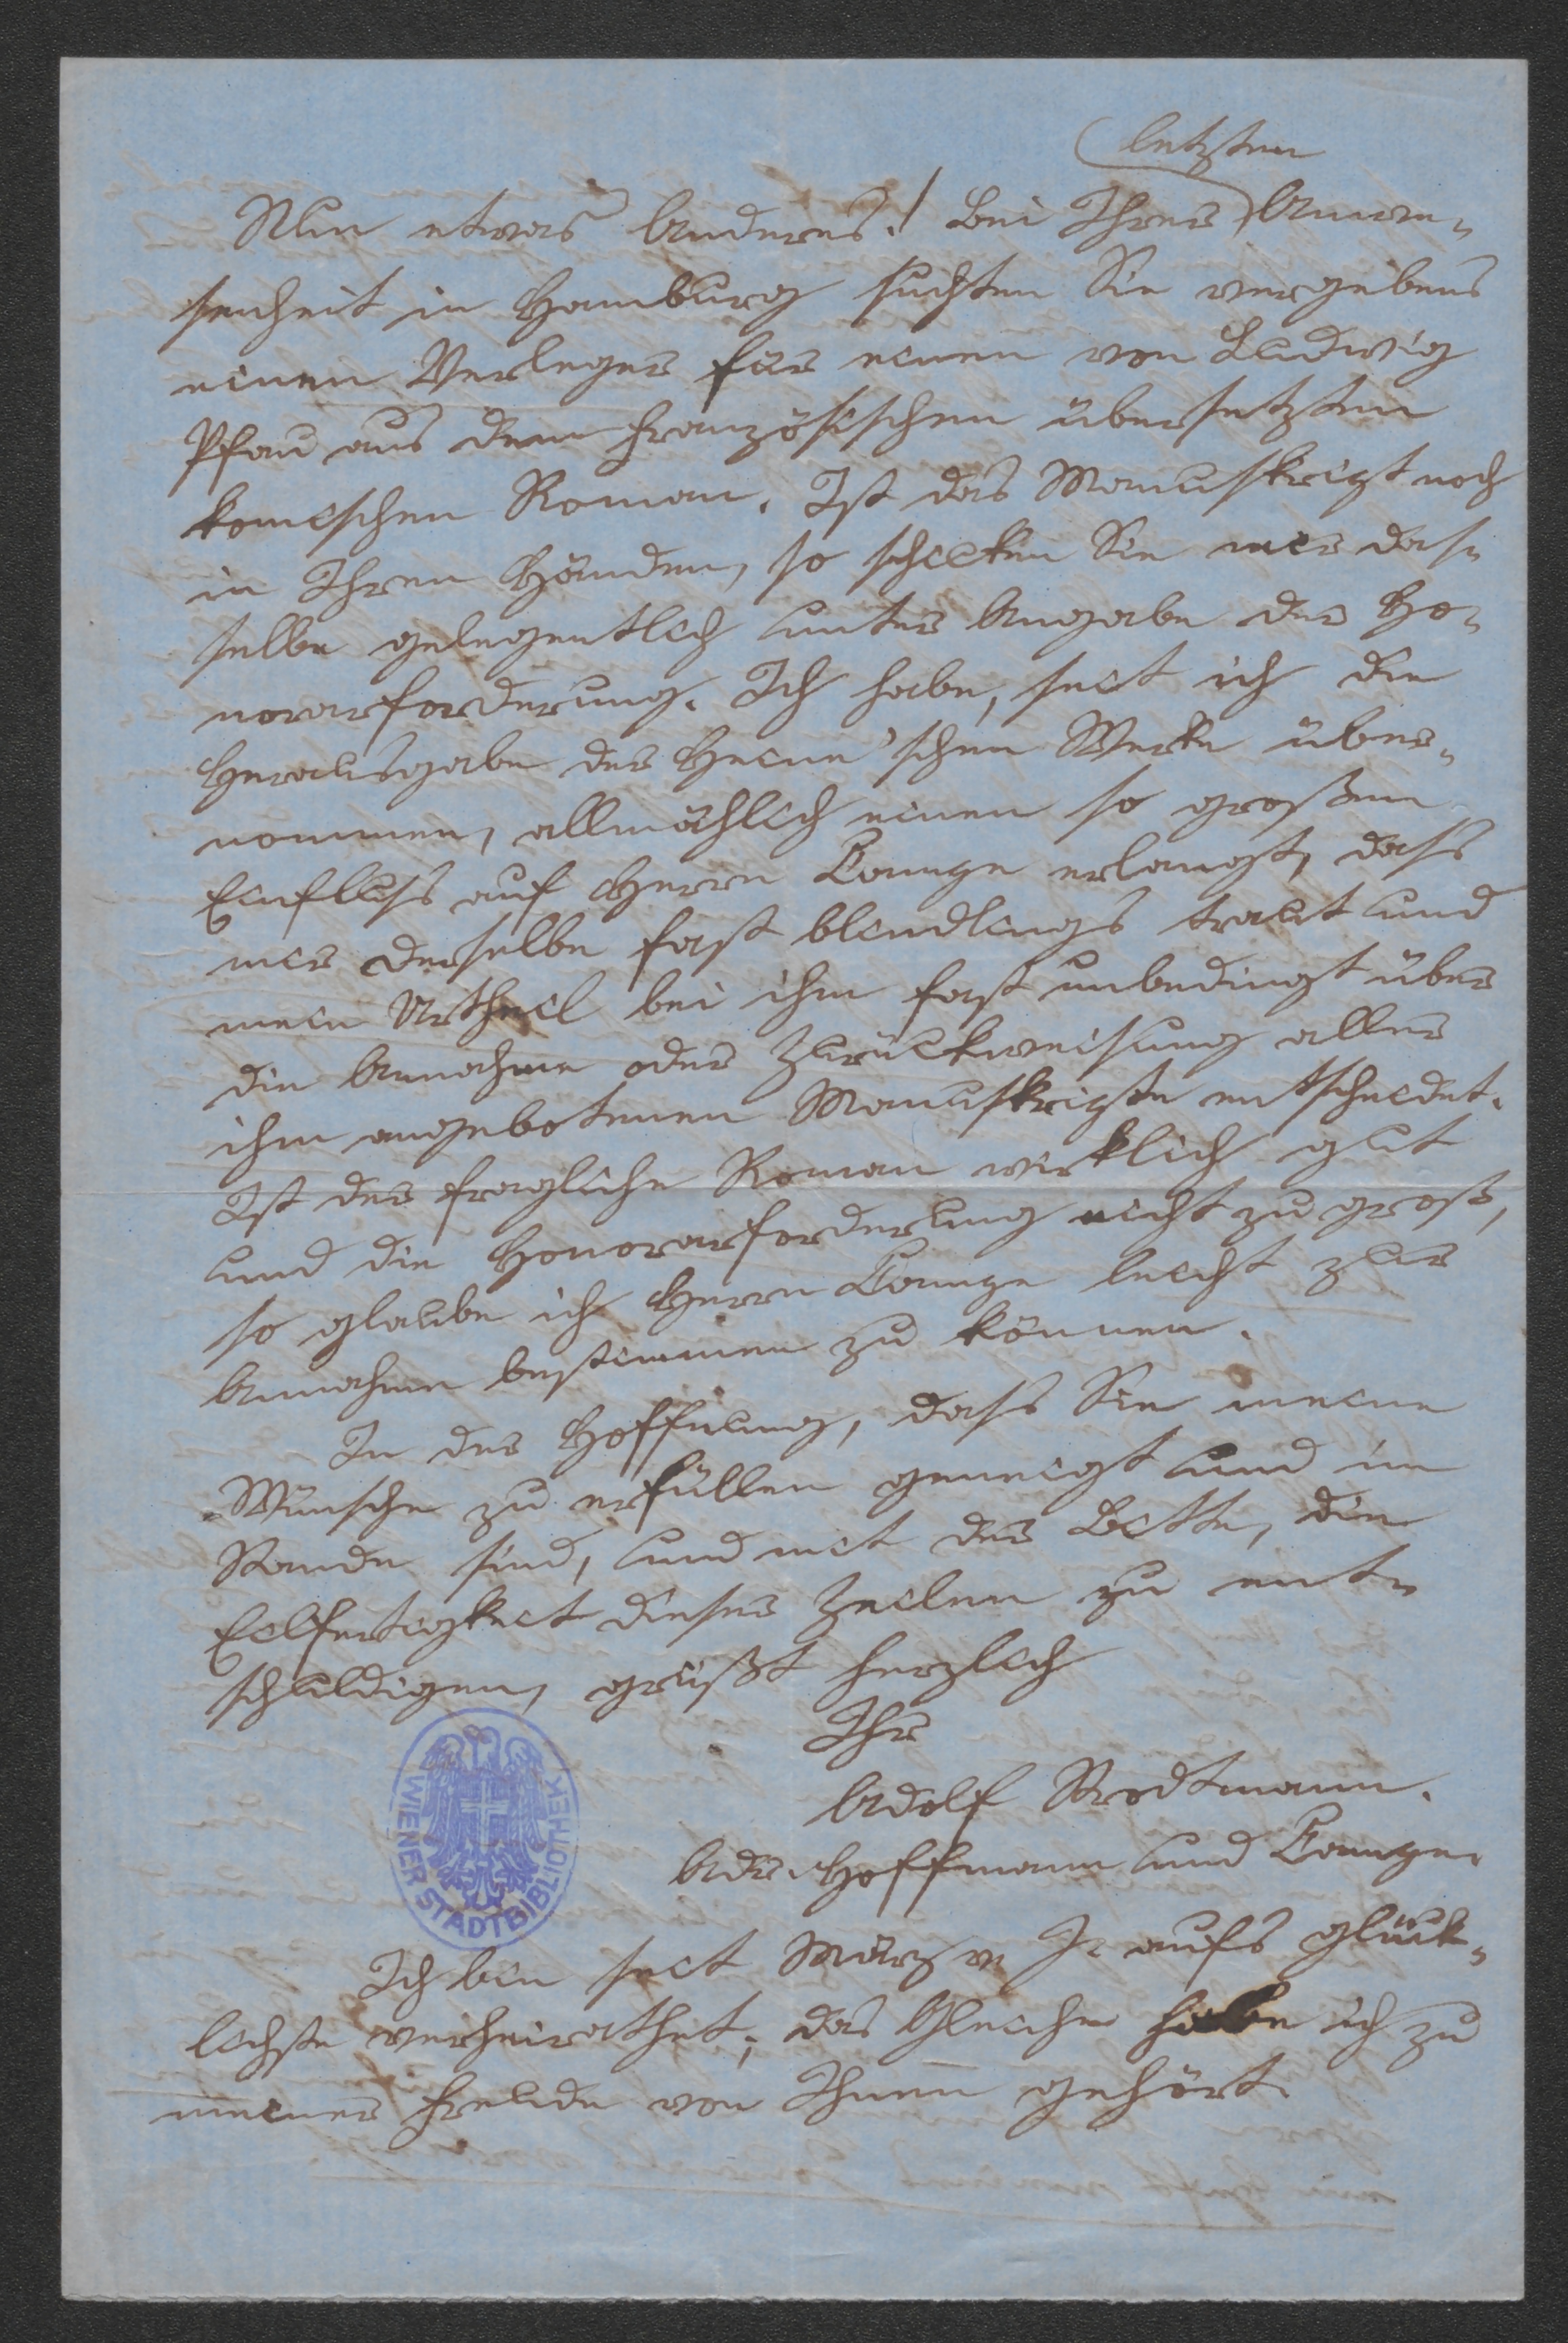 letzten
Nun etwas Anderes! Bei Ihrer Anwe-
senheit in Hamburg suchten Sie vergebens
einen Verleger für einen von Ludwig
Pfau aus dem Französischen übersetzten
komischen Roman. Ist das Manuskript noch
in Ihren Händen, so schicken Sie mir das-
selbe gelegentlich unter Angabe der Ho-
norarforderung. Ich habe, seit ich die
Herausgabe der Heine'schen Werke über-
nommen, allmählich einen so großen
Einfluss auf Herrn Campe erlangt, dass
mir derselbe fast blindlings traut und
mein Urtheil bei ihm fast unbedingt über
die Annahme oder Zurückweisung aller
ihm angebotenen Manuskripte entscheidet.
Ist der fragliche Roman wirklich gut
und die Honorarforderung nicht zu groß,
so glaube ich Herrn Campe leicht zur
Annahme bestimmen zu können.
In der Hoffnung, dass Sie meine
Wünsche zu erfüllen geneigt und im
Stande sind, und mit der Bitte, die
Eilfertigkeit dieser Zeilen zu ent-
schuldigen, grüßt herzlich
Ihr
Adolf Strodtmann.
Adr. Hoffmann und Campe.
WIENER STADTBIBLIOTHEK
Ich bin seit März v. J. aufs glück-
lichste verheirathet; das Gleiche habe ich zu
meiner Freude von Ihnen gehört.